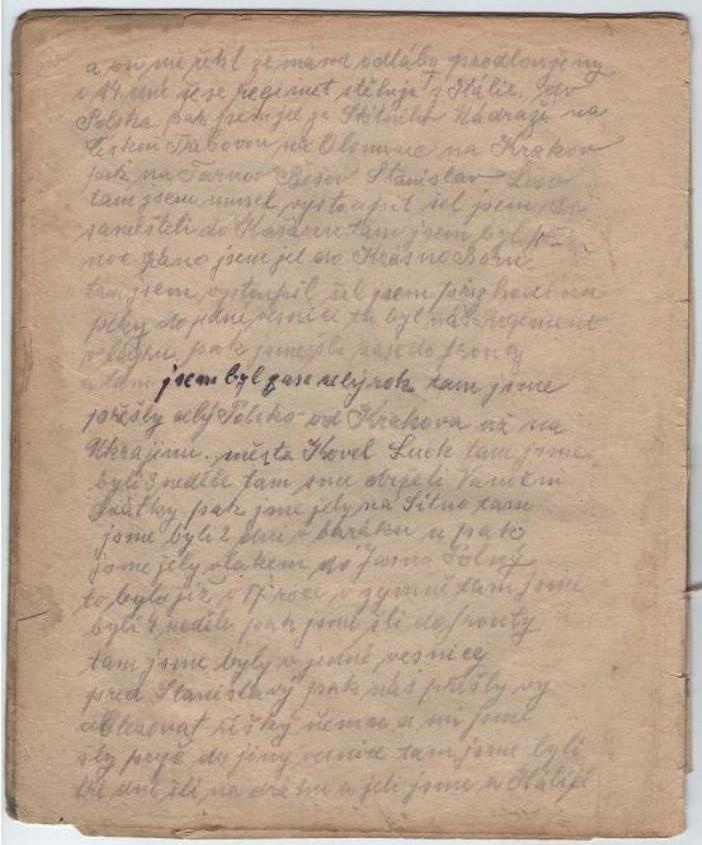 a on mě řekl že máme odláby prodloužený
o 14 dní že se regimet stěhuje z Itálie. do
Polska pak jsem jel ze Nádraží na
Českou Třabovou na Olomouc na Krakov
pak na Tarnov Stanislav Lvov
tam jsem musel vystoupit šel jsem
do Kasáren tam jsem byl
noc ráno jsem jel do Krásno
tam jsem vystoupil šel jsem přez hodinu
pěky do jedné vesnice tu byl náš regiment
v lágru pak jsme šli zase do fronty
a tam jsem byl zase celý rok tam jsme
přešly celý Polsko od Krakova až na
Ukrajinu. města Kovel Luck tam jsme
byli 3 neděle tam sme drželi Vánoční
Svátky pak jsme jely na Sitno tam
jsme byli 2 dni v baráku a pak
jsme jely vlakem do
to bylo již v 17 roce v zymně tam jsme
byli 4 neděle pak jsme šli do fronty
tam jsme byly v jedné vesnicy
pred Stanislavý pak nás přišly vy
ablezovat říšký němcu a mi jsme
šly pryč do jiny vesnice tam jsme byli
tři dni šli na dráhu a jeli jsme a